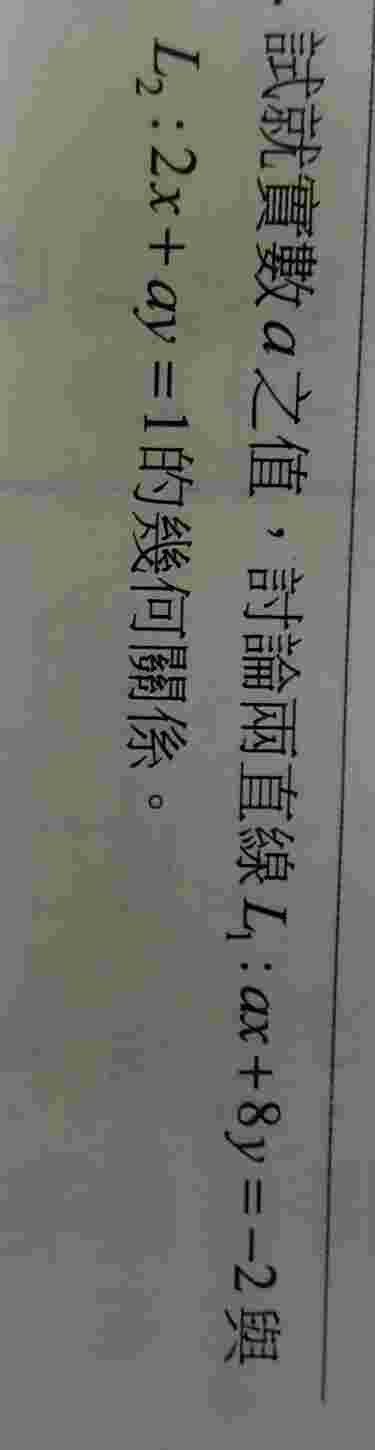 試就實數 a 之值，討論兩直線 L₁：ax+8y=−2 與
L₂：2x+ay=1 的幾何關係。